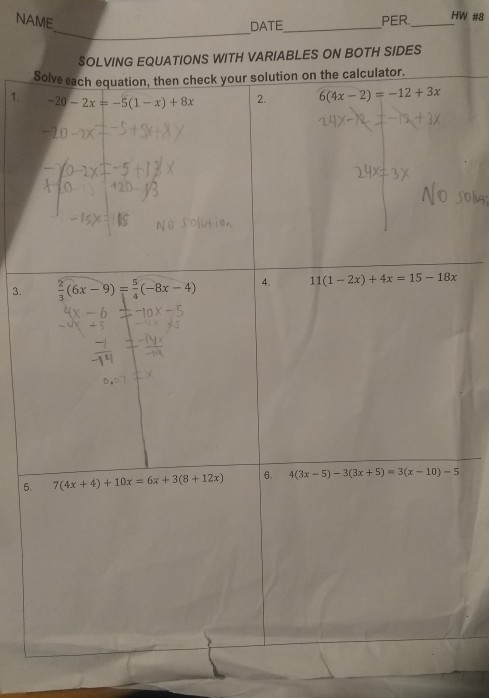 NAME DATE PER. HW #8
SOLVING EQUATIONS WITH VARIABLES ON BOTH SIDES
Solve each equation, then check your solution on the calculator.
1. -20 - 2x = -5(1 - x) + 8x
-20-2x = -5+5x+8x
-20-2x = -5+13x
+20 +20-13
-15x = 15 No solution
2. 6(4x - 2) = -12 + 3x
24x-12 = -12+3x
24x = 3x
No
3. 2/3(6x - 9) = 5/4(-8x - 4)
4x - 6 = -10x - 5
-4x +5 -4x +5
-1/-14 = -14x/-14
0.07 = x
4. 11(1 - 2x) + 4x = 15 - 18x
5. 7(4x + 4) + 10x = 6x + 3(8 + 12x)
6. 4(3x - 5) - 3(3x + 5) = 3(x - 10) - 5